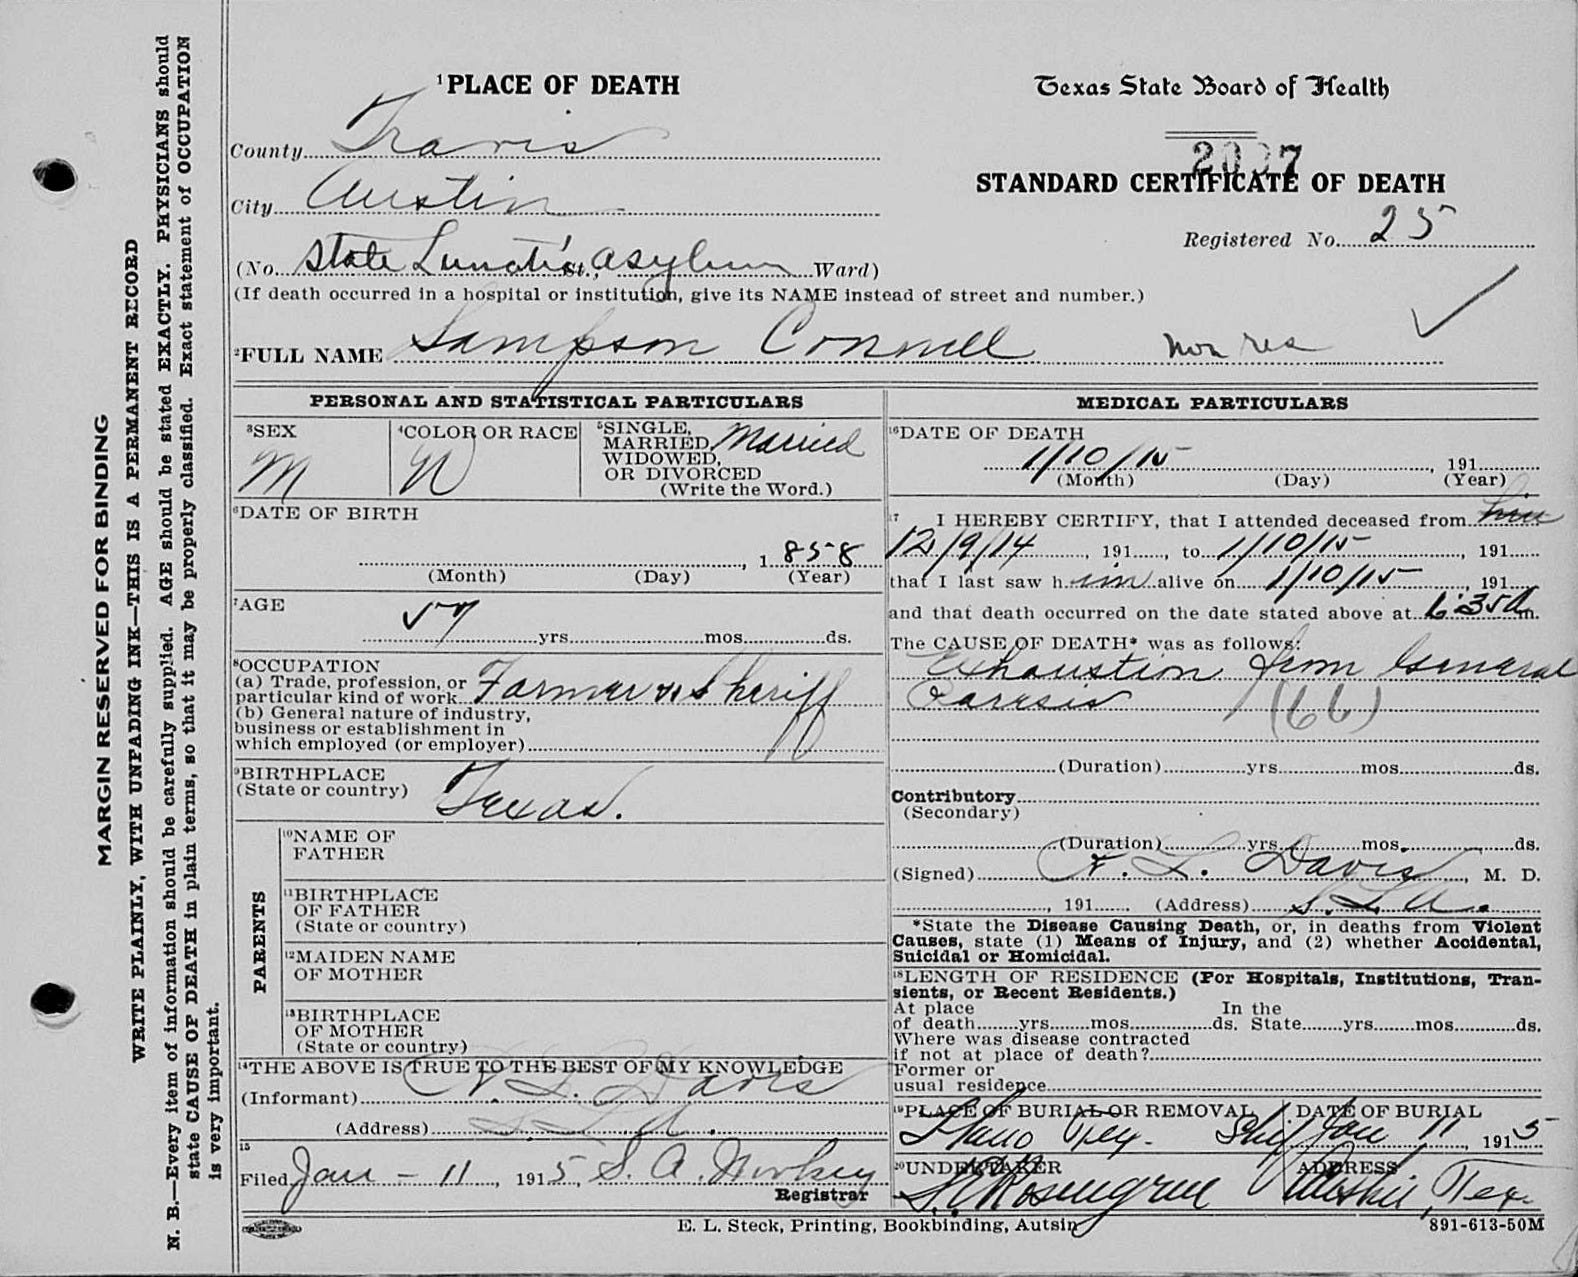 MARGIN RESERVED FOR BINDING
WRITE PLAINLY, WITH UNFADING INK—THIS IS A PERMANENT RECORD
N. B.—Every item of information should be carefully supplied. AGE should be stated EXACTLY. PHYSICIANS should
state CAUSE OF DEATH in plain terms, so that it may be properly classified. Exact statement of OCCUPATION
is very important.
1 PLACE OF DEATH
Texas State Board of Health
County Travis
STANDARD CERTIFICATE OF DEATH
City Austin
Registered No. 25
(No. State Lunatic St., Asylum Ward)
(If death occurred in a hospital or institution, give its NAME instead of street and number.)
2 FULL NAME Sampson Connell non res
PERSONAL AND STATISTICAL PARTICULARS
3 SEX
M
4 COLOR OR RACE
W
5 SINGLE,
MARRIED,
WIDOWED,
OR DIVORCED
(Write the Word.)
Married
6 DATE OF BIRTH
1 858
(Month) (Day) (Year)
7 AGE
57 yrs. mos. ds.
8 OCCUPATION
(a) Trade, profession, or
particular kind of work Farmer & Sheriff
(b) General nature of industry,
business or establishment in
which employed (or employer)
9 BIRTHPLACE
(State or country) Texas.
PARENTS
10 NAME OF
FATHER
11 BIRTHPLACE
OF FATHER
(State or country)
12 MAIDEN NAME
OF MOTHER
13 BIRTHPLACE
OF MOTHER
(State or country)
14 THE ABOVE IS TRUE TO THE BEST OF MY KNOWLEDGE
(Informant) L. Davis
(Address) S. L. A.
15
Filed Jan - 11, 1915 S. A.
Registrar
MEDICAL PARTICULARS
16 DATE OF DEATH
1/10/15, 191
(Month) (Day) (Year)
17 I HEREBY CERTIFY, that I attended deceased from him
12/9/14, 191, to 1/10/15, 191
that I last saw h im alive on 1/10/15, 191
and that death occurred on the date stated above at 6:35 A m.
The CAUSE OF DEATH* was as follows:
Exhaustion from General
Paresis (66)
(Duration) yrs. mos. ds.
Contributory
(Secondary)
(Duration) yrs. mos. ds.
(Signed) L. Davis, M. D.
, 191 (Address) S. L. A.
*State the Disease Causing Death, or, in deaths from Violent
Causes, state (1) Means of Injury, and (2) whether Accidental,
Suicidal or Homicidal.
18 LENGTH OF RESIDENCE (For Hospitals, Institutions, Tran-
sients, or Recent Residents.)
At place In the
of death yrs. mos. ds. State yrs. mos. ds.
Where was disease contracted
if not at place of death?
Former or
usual residence
19 PLACE OF BURIAL OR REMOVAL
Llano Tex. Ship
DATE OF BURIAL
Jan 11, 1915
20 UNDERTAKER
Rosengren
ADDRESS
Austin, Tex
E. L. Steck, Printing, Bookbinding, Autsin
891-613-50M